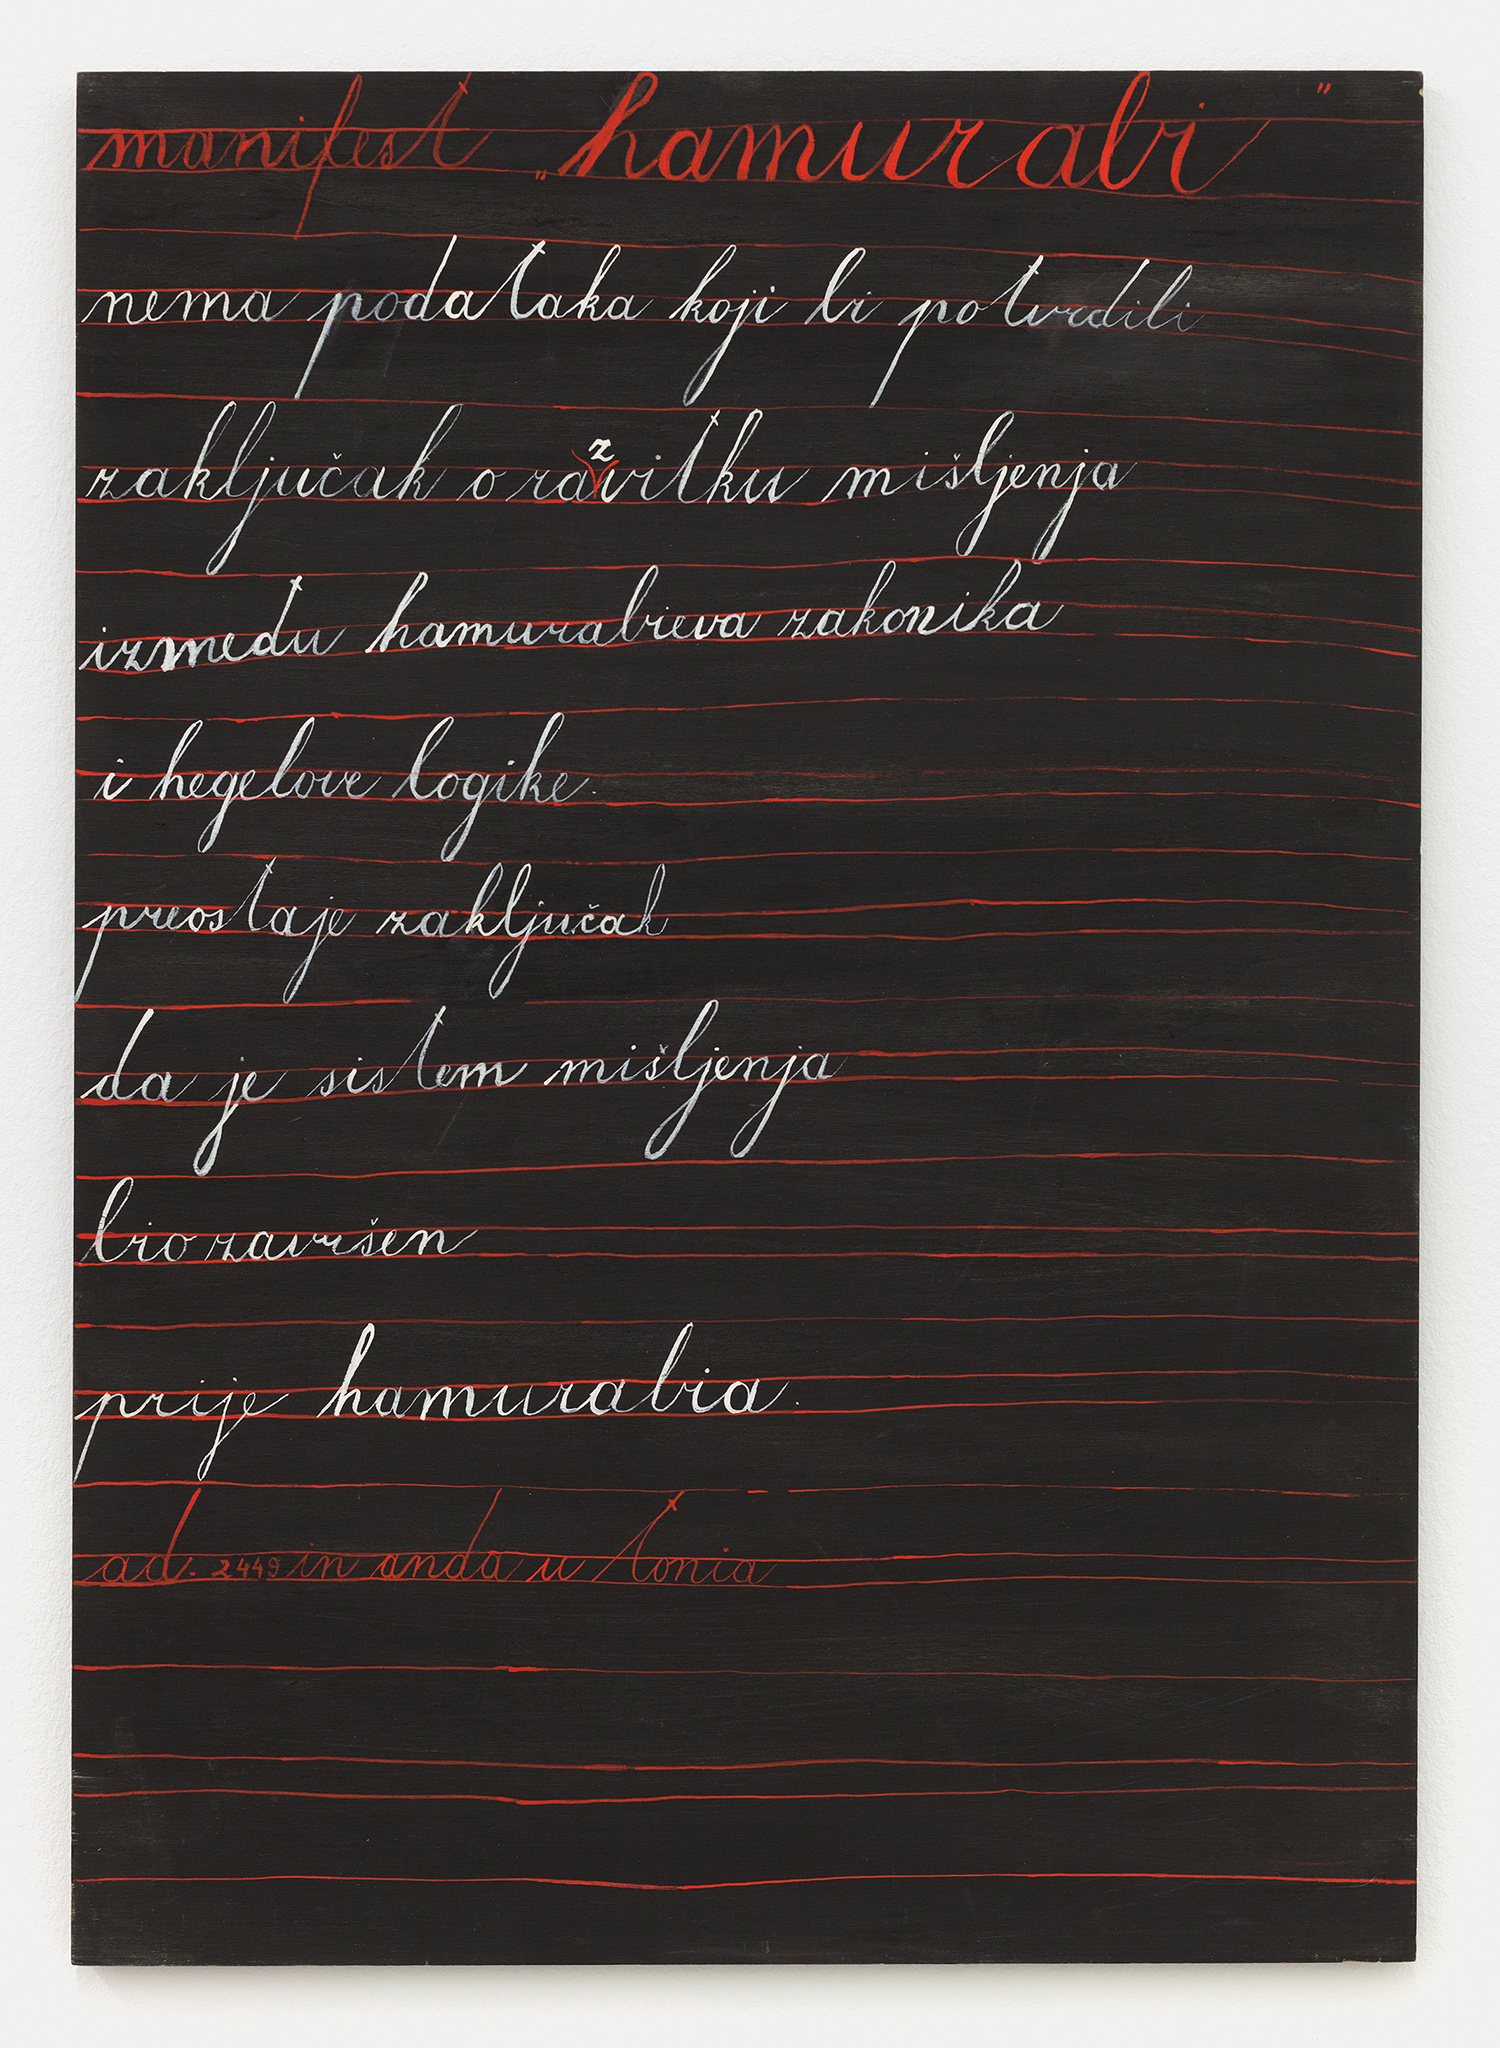 manifest „hamurabi"
nema podataka koji bi potvrdili
zaključak o razvitku mišljenja
izmedu hamurabieva zakonika
i hegelove logike.
preostaje zaključak
da je sistem mišljenja
bio završen
prije hamurabia.
ad. 2449 in anda u tonia